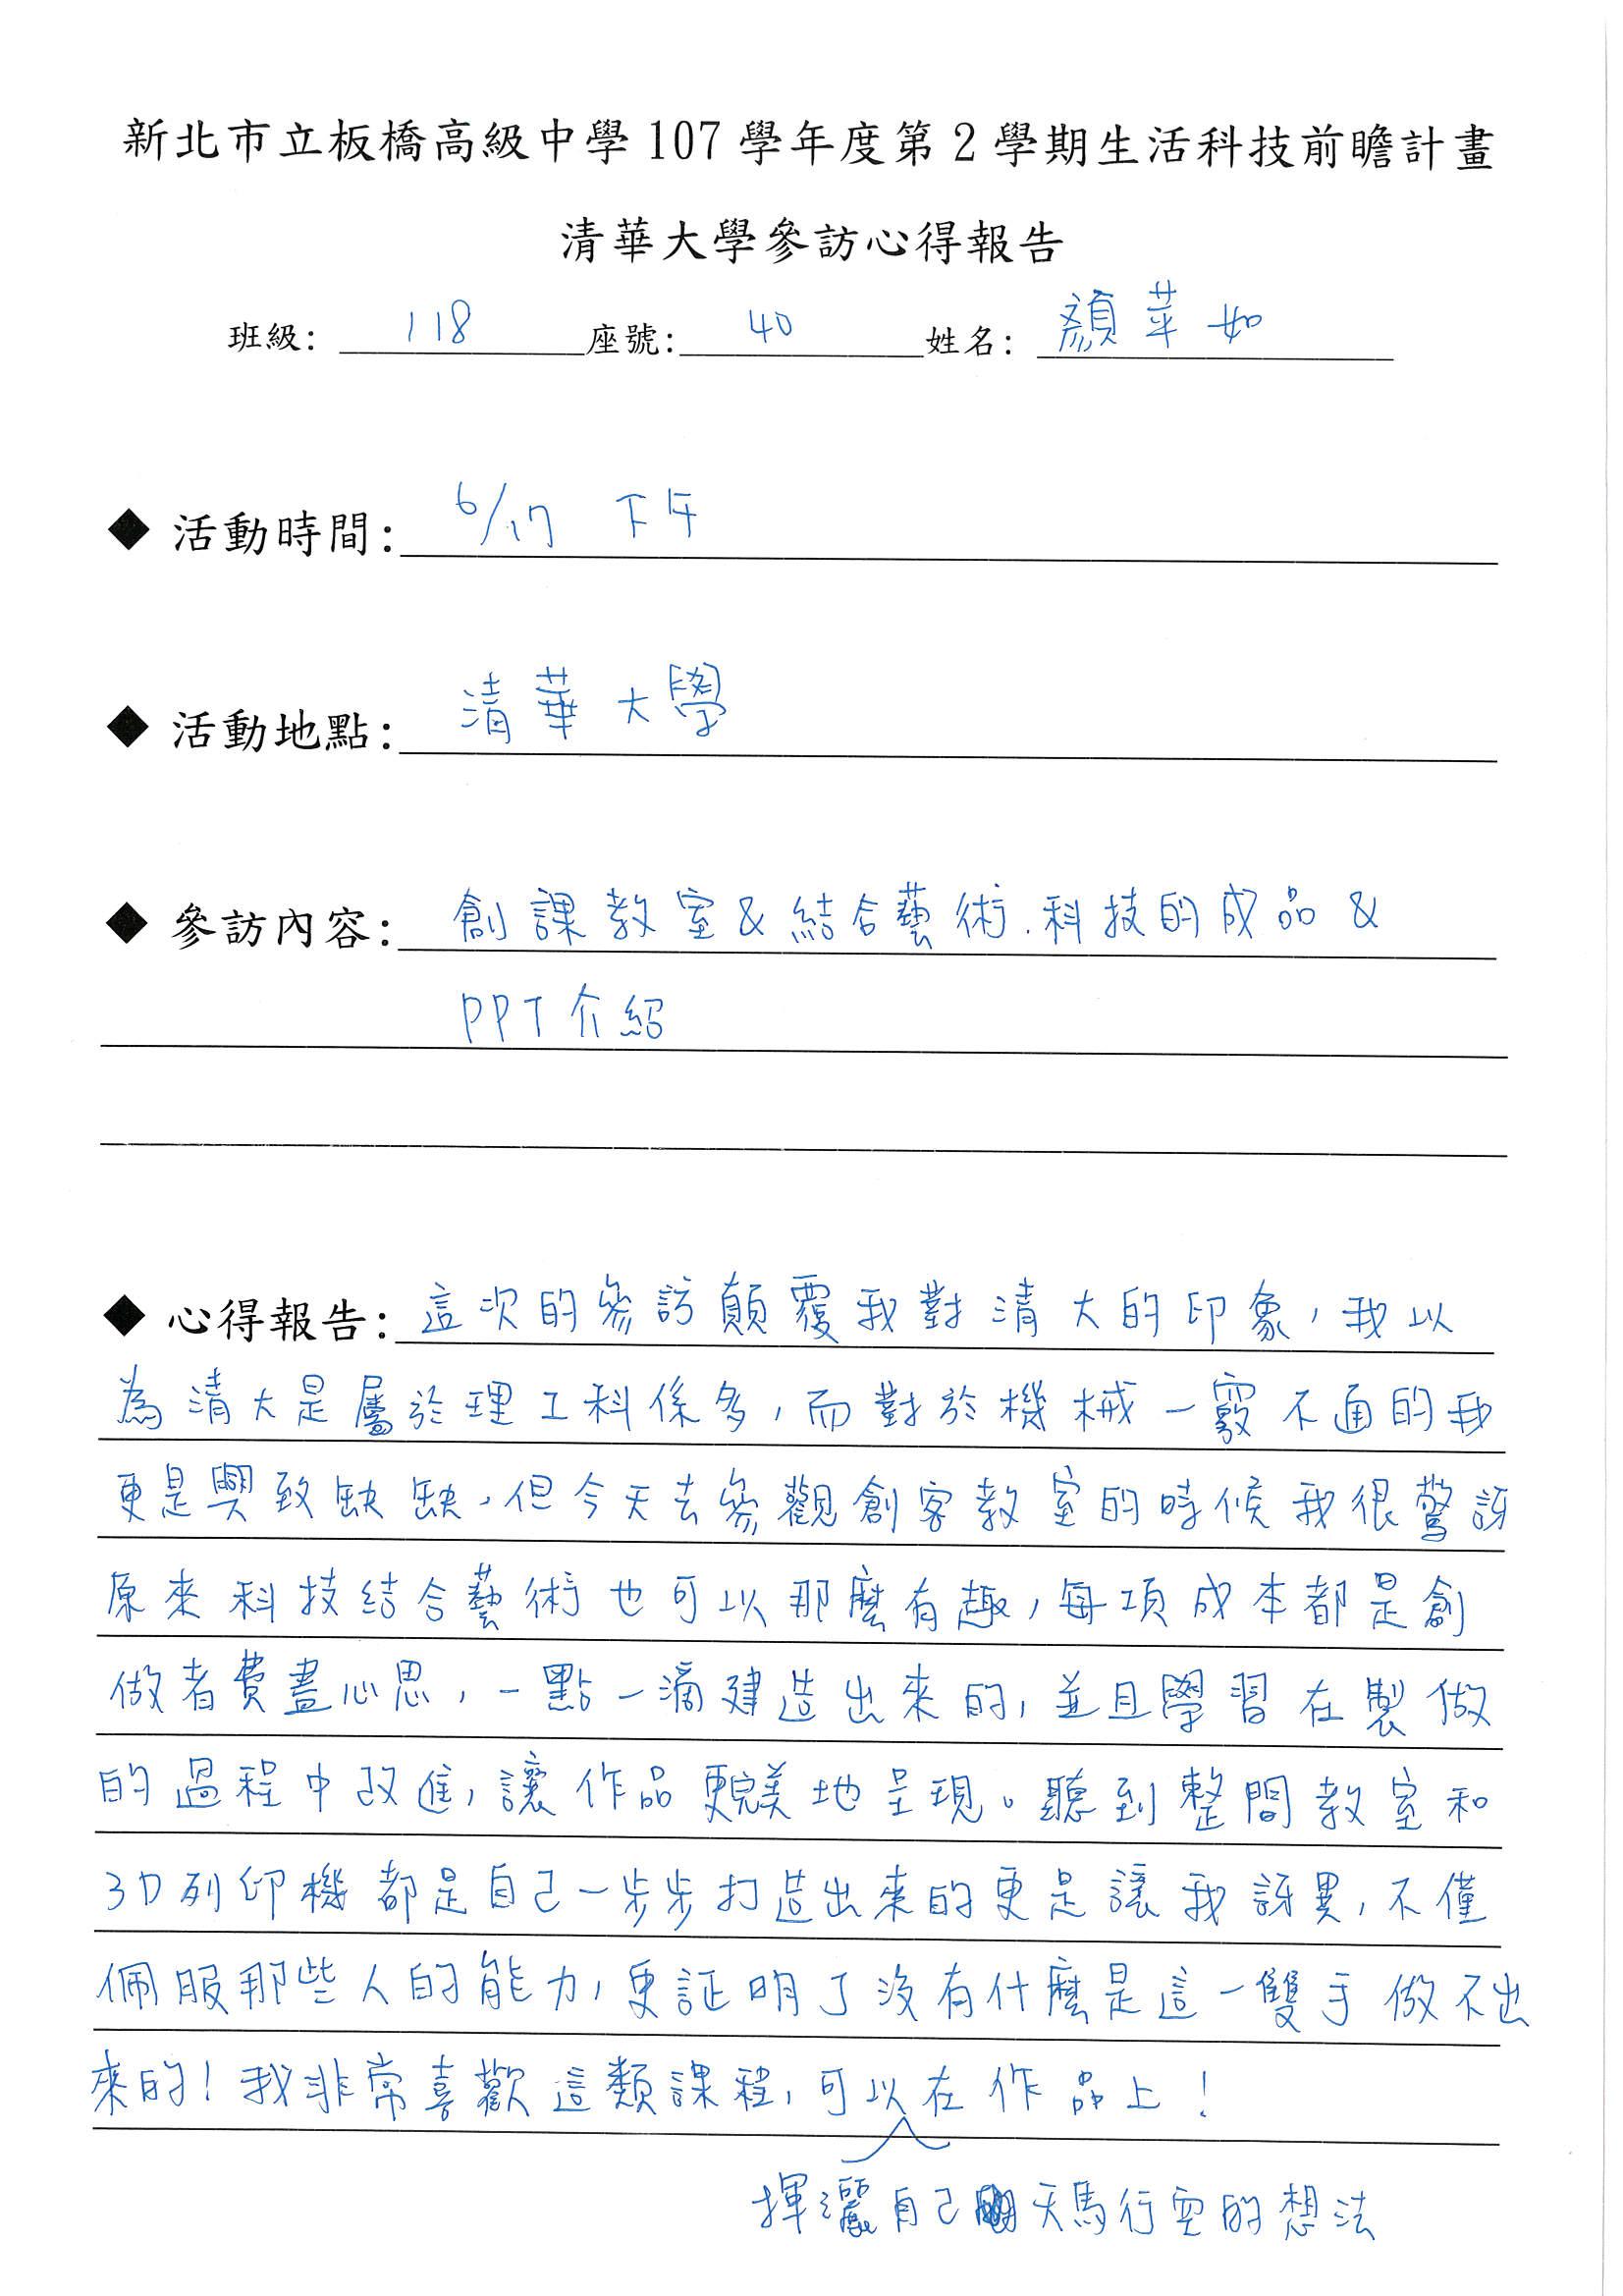 新北市立板橋高級中學107學年度第2學期生活科技前瞻計畫
清華大學參訪心得報告
班級: 118 座號: 40 姓名: 顏苹如
◆ 活動時間: 6/17 下午
◆ 活動地點: 清華大學
◆ 參訪內容: 創課教室&結合藝術.科技的成品&
PPT介紹
◆ 心得報告: 這次的參訪顛覆我對清大的印象,我以
為清大是屬於理工科係多,而對於機械一竅不通的我
更是興致缺缺,但今天去參觀創客教室的時候我很驚訝
原來科技結合藝術也可以那麼有趣,每項成本都是創
做者費盡心思,一點一滴建造出來的,並且學習在製做
的過程中改進,讓作品更完美地呈現。聽到整間教室和
3D列印機都是自己一步步打造出來的更是讓我訝異,不僅
佩服那些人的能力,更証明了沒有什麼是這一雙手做不出
來的!我非常喜歡這類課程,可以在作品上!
揮灑自己天馬行空的想法